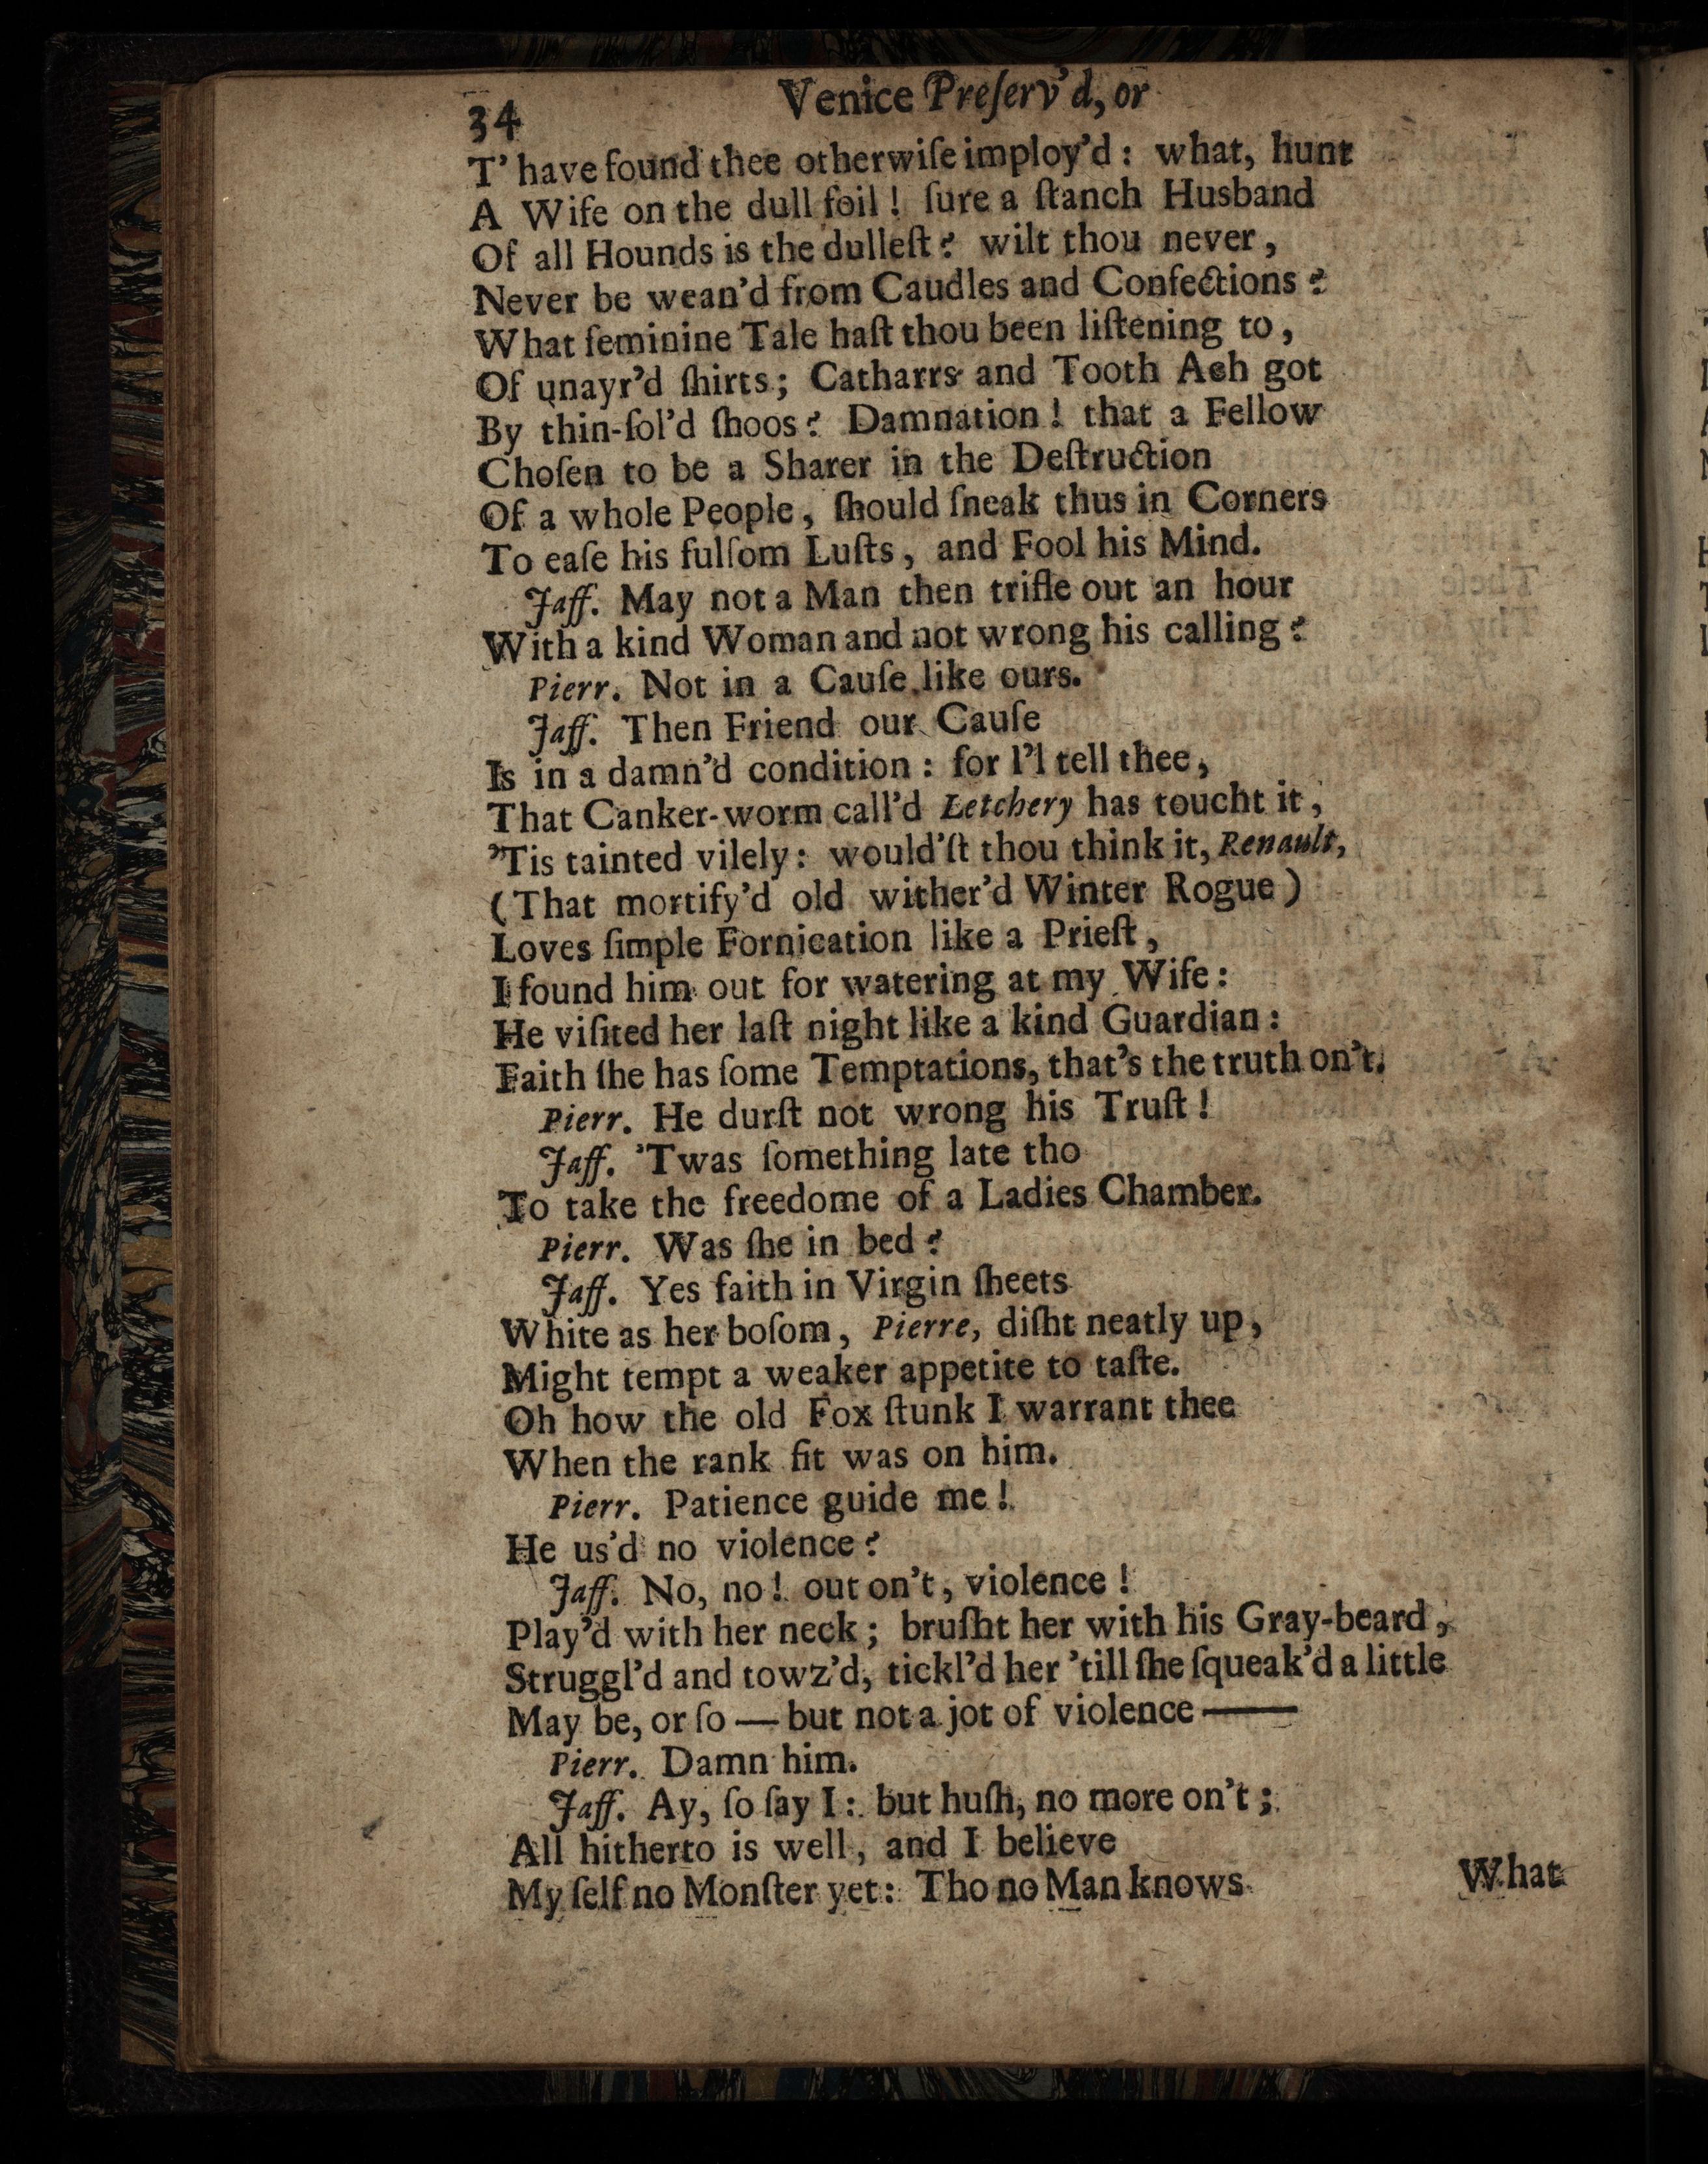 34
Venice Preſerv'd, or
T' have found thee otherwiſe imploy'd: what, hunt
A Wife on the dull foil! ſure a ſtanch Husband
Of all Hounds is the dulleſt? wilt thou never,
Never be wean'd from Caudles and Confections?
What feminine Tale haſt thou been liſtening to,
Of unayr'd ſhirts; Catharrs and Tooth Ach got
By thin-ſol'd ſhoos? Damnation! that a Fellow
Choſen to be a Sharer in the Deſtruction
Of a whole People, ſhould ſneak thus in Corners
To eaſe his fulſom Luſts, and Fool his Mind.
Jaff. May not a Man then trifle out an hour
With a kind Woman and not wrong his calling?
Pierr. Not in a Cauſe like ours.
Jaff. Then Friend our Cauſe
Is in a damn'd condition: for I'l tell thee,
That Canker-worm call'd Letchery has toucht it,
'Tis tainted vilely: would'ſt thou think it, Renault,
(That mortify'd old wither'd Winter Rogue)
Loves ſimple Fornication like a Prieſt,
I found him out for watering at my Wife:
He viſited her laſt night like a kind Guardian:
Faith ſhe has ſome Temptations, that's the truth on't.
Pierr. He durſt not wrong his Truſt!
Jaff. 'Twas ſomething late tho
To take the freedome of a Ladies Chamber.
Pierr. Was ſhe in bed?
Jaff. Yes faith in Virgin ſheets
White as her boſom, Pierre, diſht neatly up,
Might tempt a weaker appetite to taſte.
Oh how the old Fox ſtunk I warrant thee
When the rank fit was on him.
Pierr. Patience guide me!
He us'd no violence?
Jaff. No, no! out on't, violence!
Play'd with her neck; bruſht her with his Gray-beard,
Struggl'd and towz'd, tickl'd her 'till ſhe ſqueak'd a little
May be, or ſo — but not a jot of violence ——
Pierr. Damn him.
Jaff. Ay, ſo ſay I: but huſh, no more on't;
All hitherto is well, and I believe
My ſelf no Monſter yet: Tho no Man knows
What